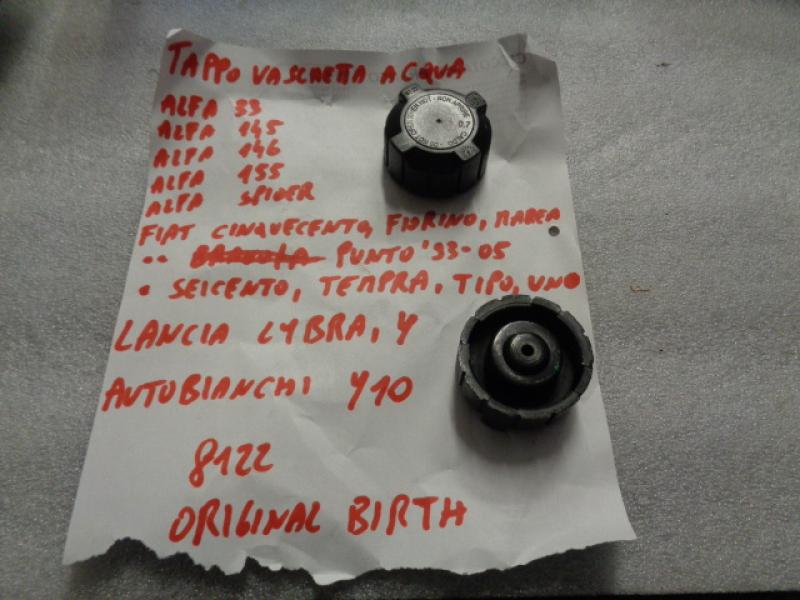 TAPPO VASCHETTA ACQUA
ALFA 33
ALFA 145
ALFA 146
ALFA 155
ALFA SPIDER
FIAT CINQUECENTO, FIORINO, MAREA
" PUNTO '93-05
" SEICENTO, TEMPRA, TIPO, UNO
LANCIA LYBRA, Y
AUTOBIANCHI Y10
8122
ORIGINAL BIRTH
NON APRIRE
CALDO - DO NOT OPEN WHEN HOT -
0.7